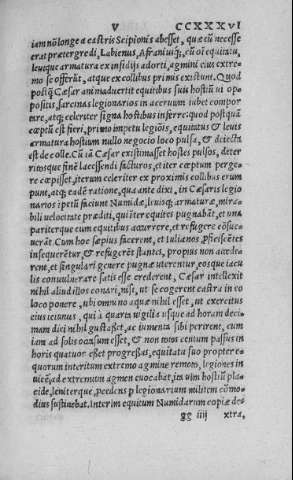 V CCXXXVI
iam nõ longe a castris Scipionis abesset, quæ eũ necesse
erat prætergredi, Labienus, Afraniusq́; cũ oĩ equitatu,
leuiq́ue armatura ex insidijs adorti, agmini eius extre-
mo se offerũt, atque ex collibus primis existunt. Quod
postq̃ Cæsar animaduertit equitibus suis hostiũ ui op
positis, sarcinas legionarios in aceruum iubet compor
tare, atq; celeriter signa hostibus inferre: quod postquã
cœptũ est fieri, primo impetu legiõis, equitatus & leuis
armatura hostium nullo negocio loco pulsa, & deiecta
est de colle. Cũ iã Cæsar existimasset hostes pulsos, deter
ritosque finẽ lacessendi facturos, et iter cœptum perge-
re cœpisset, iterum celeriter ex proximis collibus erum
punt, atq; eadẽ ratione, qua ante dixi, in Cæsaris legio
narios ĩpetũ faciunt Numidæ, leuisq; armaturæ, mira-
bili uelocitate præditi, qui ĩter equites pugnabãt, et una
pariterque cum equitibus accurrere, et refugere cõsue
uerãt. Cum hoc sæpius facerent, et Iulianos ꝓficiscẽtes
insequerẽtur, & refugerẽt istantes, propius non accede
rent, et sĩgulari genere pugnæ uterentur, eosque iacu
lis conuulnerare satis esse crederent, Cæsar intellexit
nihil aliud illos conari, nisi, ut se cogerent castra in eo
loco ponere, ubi omnino aquæ nihil esset, ut exercitus
eius ieiunus, qui à quarta uigilia usque ad horam deci
mam diei nihil gustasset, ac iumenta siti perirent, cum
iam ad solis occasum esset, & non totos centum passus in
horis quatuor esset progressus, equitatu suo propter e-
quorum interitum extremo agmine remoto, legiones in
uicẽ, ad extremum agmen euocabat, ita uim hostiũ pla-
cide, leniterque, ꝓcedens ꝑ legionarium militem cõmo-
dius sustinebat. Interim equitum Numidarum copiæ dex
gg iiij xtra,